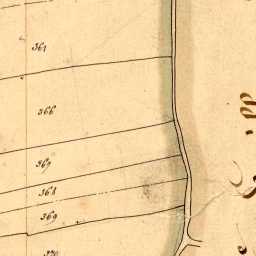 361
366
367
368
369
370